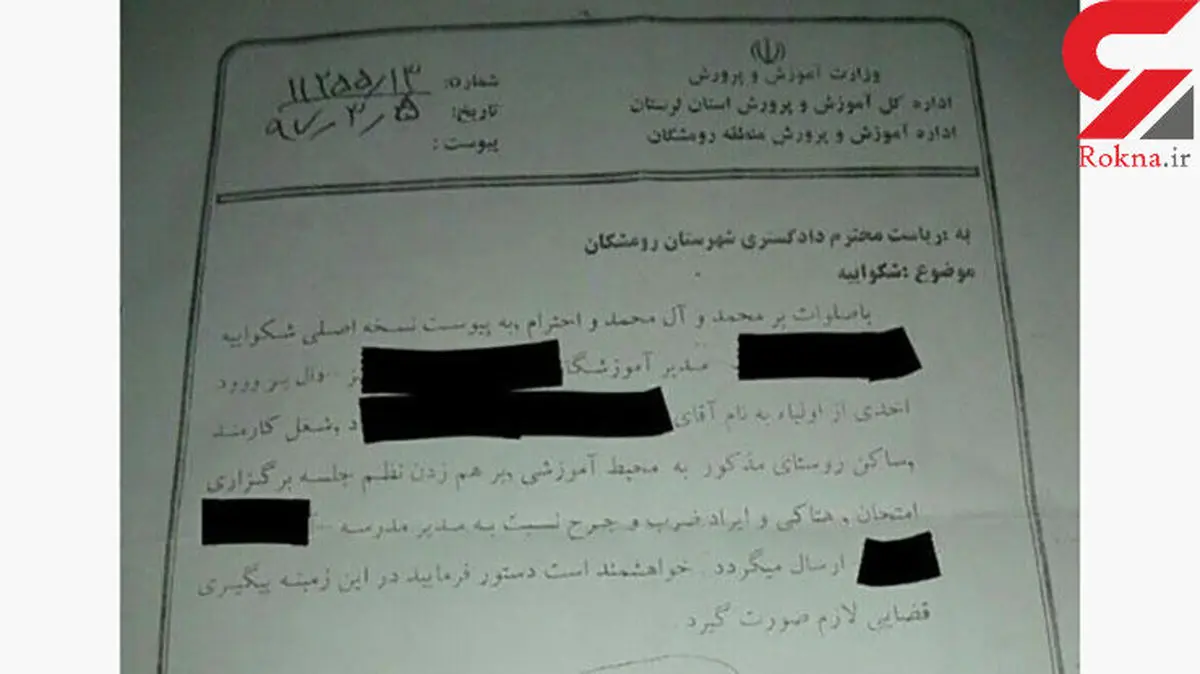 وزارت آموزش و پرورش
اداره کل آموزش و پرورش استان لرستان
اداره آموزش و پرورش منطقه رومشکان
شماره: ۱۱۲۵۵/۱۳
تاریخ: ۹۷/۳/۵
پیوست :
Rokna.ir
به :ریاست محترم دادگستری شهرستان رومشکان
موضوع :شکواییه
باصلوات بر محمد و آل محمد و احترام ,به پیوست نسخه اصلی شکواییه
مدیر آموزشگا دال بر ورود
احدی از اولیاء به نام آقای د ,شغل کارمند
,ساکن روستای مذکور به محیط آموزشی ,بر هم زدن نظم جلسه برگزاری
امتحان , هتاکی و ایراد ضرب و جرح نسبت به مدیر مدرسه
ارسال میگردد . خواهشمند است دستور فرمایید در این زمینه پیگیری
قضایی لازم صورت گیرد .